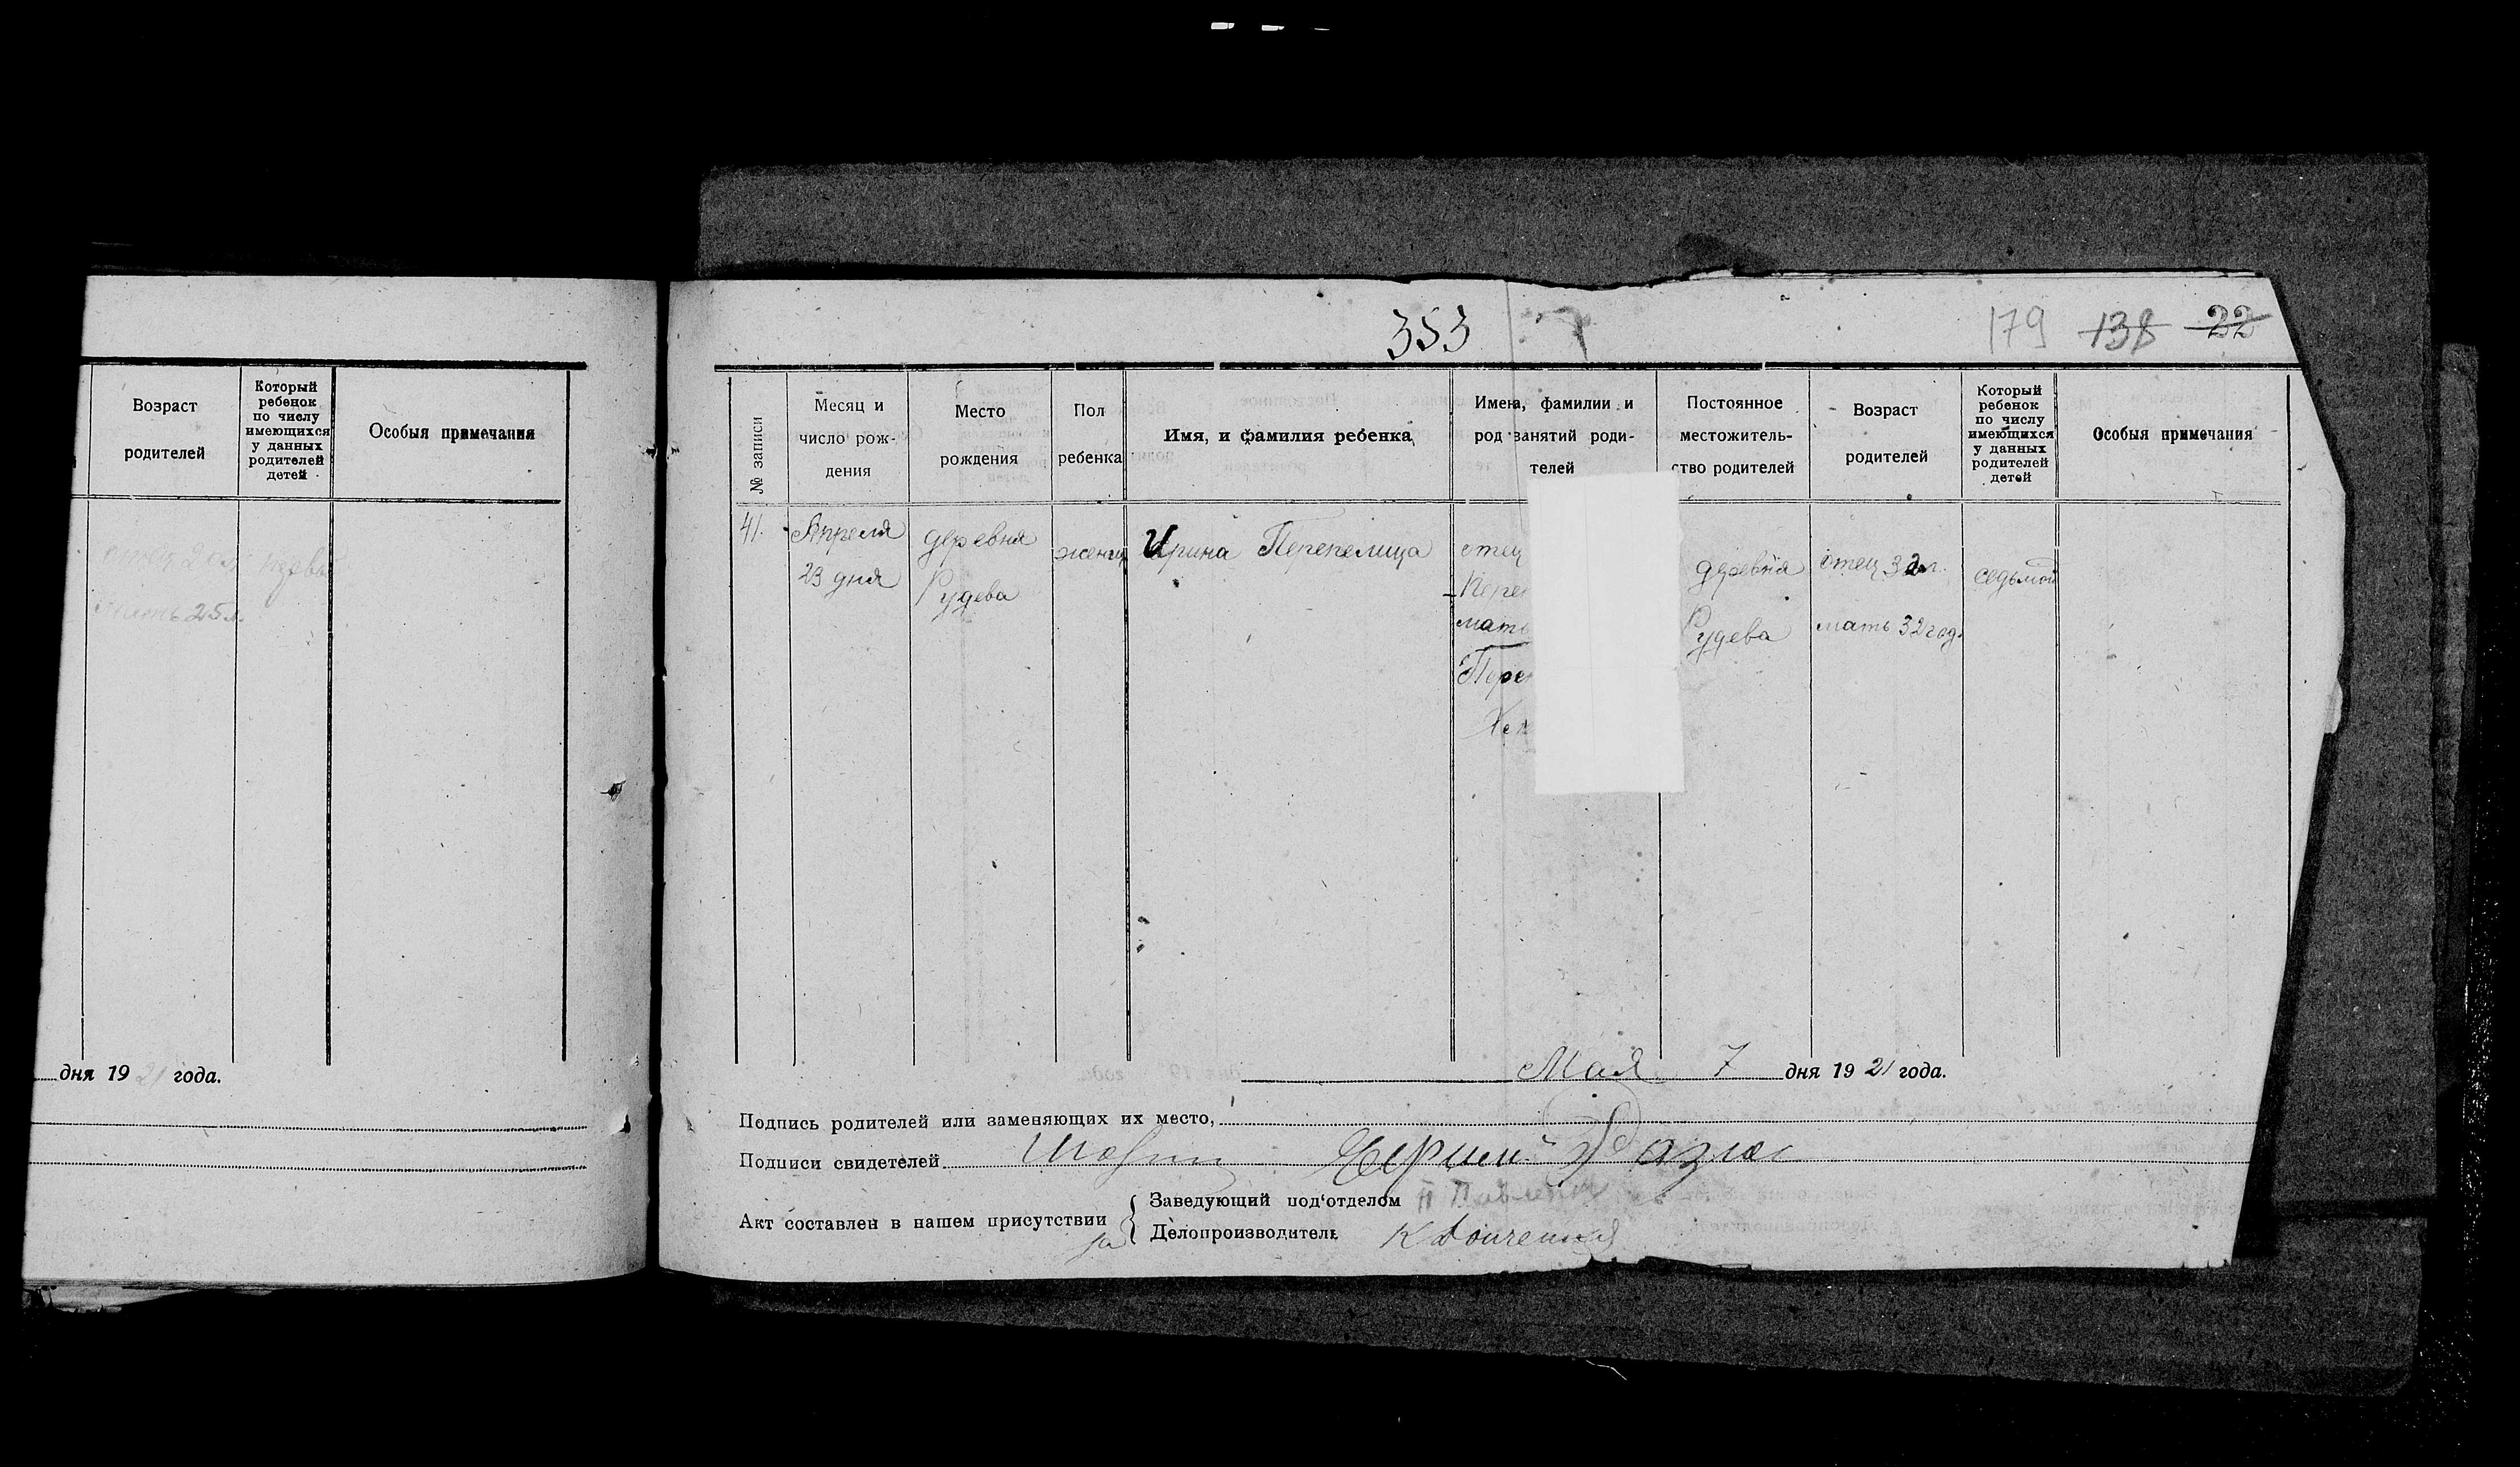 353
179 138 22
Возраст
родителей
Который
ребенок
по числу
имеющихся
у данных
родителей
детей
Особыя примечания
мать 25 л.
дня 19 21 года.
№ записи
Месяц и
число рож-
дения
Место
рождения
Пол
ребенка
Имя, и фамилия ребенка
Имена, фамилии и
род занятий роди-
телей
Постоянное
местожитель-
ство родителей
Возраст
родителей
Который
ребенок
по числу
имеющихся
у данных
родителей
детей
Особыя примечания
41.
Апреля
23 дня
деревня
Рудева
женщ
Ирина Перепелица
отец
мать
деревня
Рудева
отец 32 л.
мать 32 год.
седьмой
Мая 7 дня 19 21 года.
Подпись родителей или заменяющих их место,
Подписи свидетелей
Акт составлен в нашем присутствии
Заведующий под'отделом
Делопроизводитель